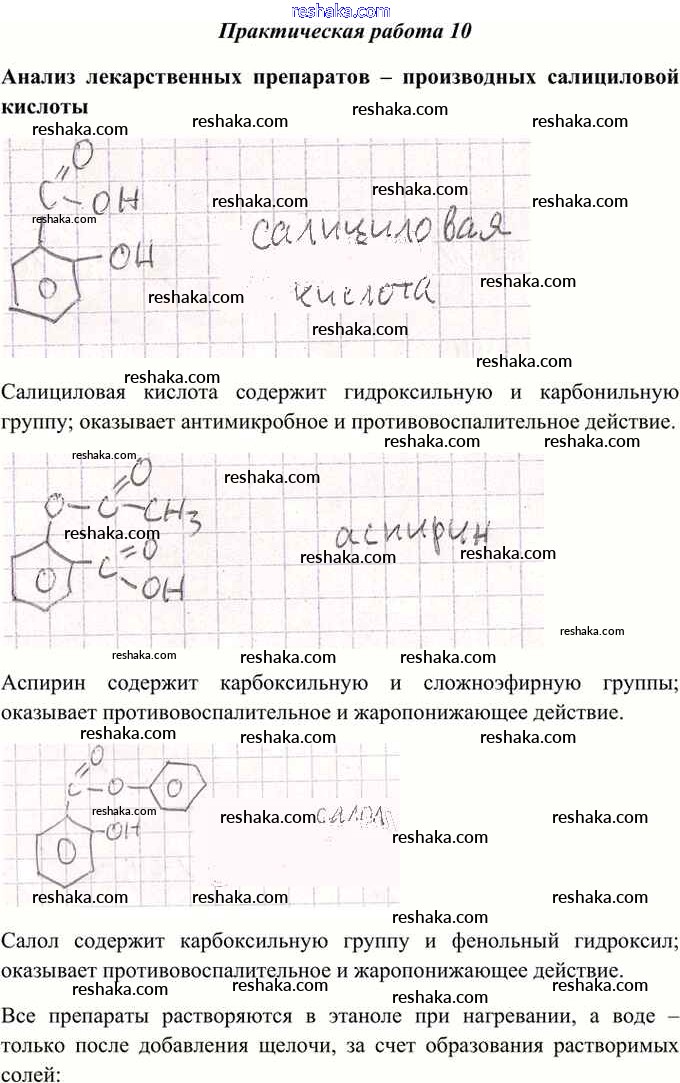 reshaka.com
Практическая работа 10
reshaka.com reshaka.com
Анализ лекарственных препаратов – производных салициловой
кислоты
reshaka.com reshaka.com reshaka.com
O
C OH
reshaka.com reshaka.com reshaka.com reshaka.com
OH
салициловая
reshaka.com reshaka.com reshaka.com
кислота
reshaka.com
reshaka.com reshaka.com
Салициловая кислота содержит гидроксильную и карбонильную
группу; оказывает антимикробное и противовоспалительное действие.
reshaka.com reshaka.com reshaka.com
O
reshaka.com
O – C – CH3
reshaka.com
аспирин
C O
reshaka.com reshaka.com
OH
reshaka.com
reshaka.com reshaka.com
Аспирин содержит карбоксильную и сложноэфирную группы;
оказывает противовоспалительное и жаропонижающее действие.
reshaka.com reshaka.com
O
C – O –
reshaka.com reshaka.com reshaka.com
салол
OH
reshaka.com
reshaka.com reshaka.com reshaka.com reshaka.com
reshaka.com
Салол содержит карбоксильную группу и фенольный гидроксил;
оказывает противовоспалительное и жаропонижающее действие.
reshaka.com reshaka.com reshaka.com
Все препараты растворяются в этаноле при нагревании, а воде –
только после добавления щелочи, за счет образования растворимых
солей:
reshaka.com reshaka.com reshaka.com